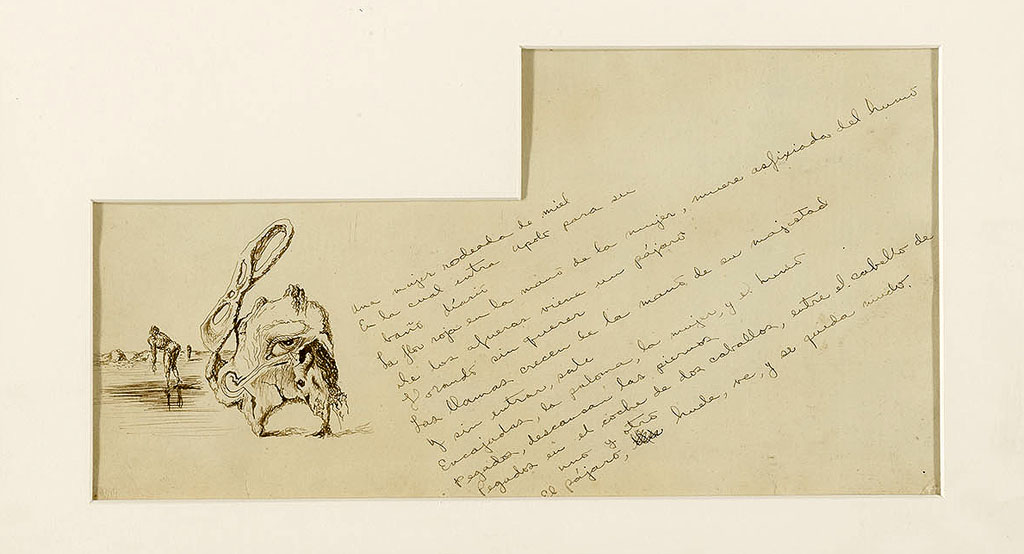 una mujer rodeada de miel
En la cual entra Apolo para su
baño diario
La flor roja en la mano de la mujer, muere asfixiada del humo
de las afueras viene un pájaro
Llorando sin querer
Las llamas crecen de la mano de su majestad
y sin entrar, sale
Encajadas, la paloma, la mujer, y el humo
Pegados, descansan las piernas
Pegados en el coche de dos caballos, entre el cabello de
uno y otro
El pájaro, huele, ve, y se queda mudo.